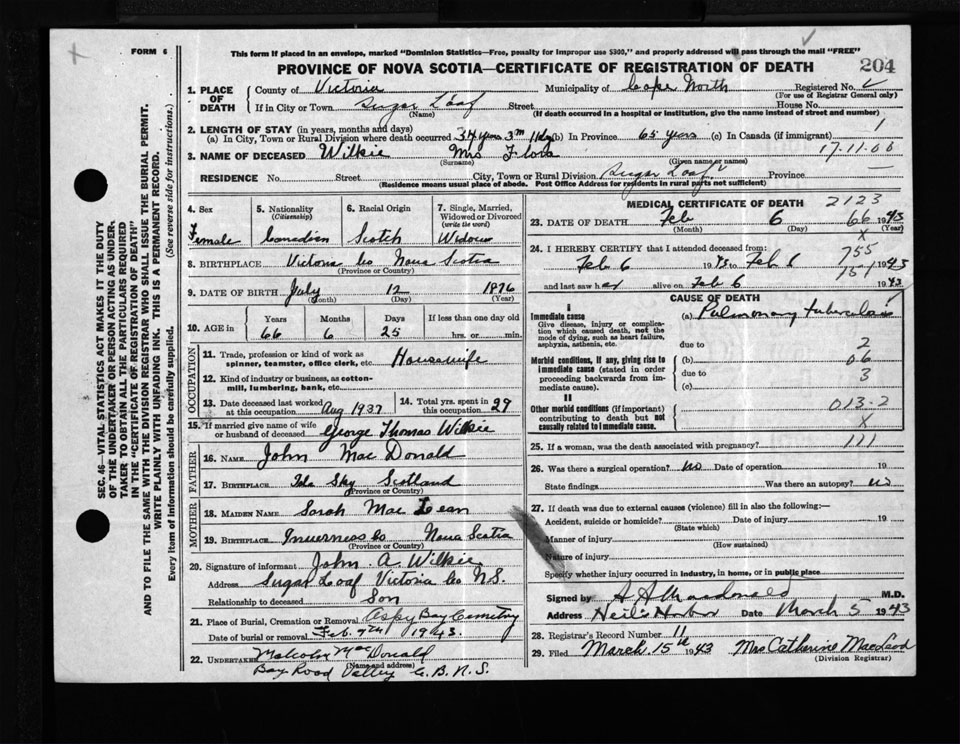 FORM 6
This form if placed in an envelope, marked "Dominion Statistics—Free, penalty for improper use $300," and properly addressed will pass through the mail "FREE"
PROVINCE OF NOVA SCOTIA—CERTIFICATE OF REGISTRATION OF DEATH
204
SEC. 46—VITAL STATISTICS ACT MAKES IT THE DUTY
OF THE UNDERTAKER OR PERSON ACTING AS UNDER-
TAKER TO OBTAIN ALL THE PARTICULARS REQUIRED
IN THE "CERTIFICATE OF REGISTRATION OF DEATH"
AND TO FILE THE SAME WITH THE DIVISION REGISTRAR WHO SHALL ISSUE THE BURIAL PERMIT.
WRITE PLAINLY WITH UNFADING INK. THIS IS A PERMANENT RECORD.
Every item of information should be carefully supplied. (See reverse side for instructions.)
1. PLACE OF DEATH
County of Victoria Municipality of Cape North Registered No.
(For use of Registrar General only)
If in City or Town Sugar Loaf Street House No.
(Name) (If death occurred in a hospital or institution, give the name instead of street and number)
2. LENGTH OF STAY (in years, months and days)
(a) In City, Town or Rural Division where death occurred 34 years 3m 11 days (b) In Province 65 years (c) In Canada (if immigrant) 1
3. NAME OF DECEASED Wilkie Mrs Flora 17.11.06
(Surname) (Given name or names)
RESIDENCE No. Street City, Town or Rural Division Sugar Loaf Province
(Residence means usual place of abode. Post Office Address for residents in rural parts not sufficient)
4. Sex
Female
5. Nationality
(Citizenship)
Canadian
6. Racial Origin
Scotch
7. Single, Married,
Widowed or Divorced
(write the word)
Widow
8. BIRTHPLACE Victoria Co Nova Scotia
(Province or Country)
9. DATE OF BIRTH July 12 1876
(Month) (Day) (Year)
10. AGE in
Years Months Days If less than one day old
66 6 25 hrs. or min.
OCCUPATION
11. Trade, profession or kind of work as
spinner, teamster, office clerk, etc. Housewife
12. Kind of industry or business, as cotton-
mill, lumbering, bank, etc.
13. Date deceased last worked
at this occupation Aug 1937
14. Total yrs. spent in
this occupation 29
15. If married give name of wife
or husband of deceased George Thomas Wilkie
FATHER
16. NAME John Mac Donald
17. BIRTHPLACE Isle Sky Scotland
(Province or Country)
MOTHER
18. MAIDEN NAME Sarah Mac Lean
19. BIRTHPLACE Inverness Co Nova Scotia
(Province or Country)
20. Signature of informant John A. Wilkie
Address Sugar Loaf Victoria Co N.S.
Relationship to deceased Son
21. Place of Burial, Cremation or Removal Aspy Bay Cemetery
Date of burial or removal Feb. 9th 1943.
22. UNDERTAKER Malcolm MacDonald
(Name and address)
Bay Road Valley C.B.N.S.
MEDICAL CERTIFICATE OF DEATH 2123
23. DATE OF DEATH Feb 6 1943
(Month) (Day) (Year)
66
X
24. I HEREBY CERTIFY that I attended deceased from:
Feb 6 1943 to Feb 6 1943
755
151
and last saw her alive on Feb 6 1943
CAUSE OF DEATH
I
Immediate cause
Give disease, injury or complica-
tion which caused death, not the
mode of dying, such as heart failure,
asphyxia, asthenia, etc.
(a) Pulmonary tuberculosis
due to 2
Morbid conditions, if any, giving rise to
immediate cause (stated in order
proceeding backwards from im-
mediate cause).
(b) 06
due to 3
(c)
II
Other morbid conditions (if important)
contributing to death but not
causally related to immediate cause.
013-2
X
25. If a woman, was the death associated with pregnancy? 111
26. Was there a surgical operation? no Date of operation 19
State findings Was there an autopsy? no
27. If death was due to external causes (violence) fill in also the following:—
Accident, suicide or homicide? Date of injury 19
(State which)
Manner of injury
(How sustained)
Nature of injury
Specify whether injury occurred in industry, in home, or in public place
Signed by H A Macdonald M.D.
Address Neil's Harbor Date March 5 1943
28. Registrar's Record Number 11
29. Filed March 15th 1943 Mrs Catherine MacLeod
(Division Registrar)